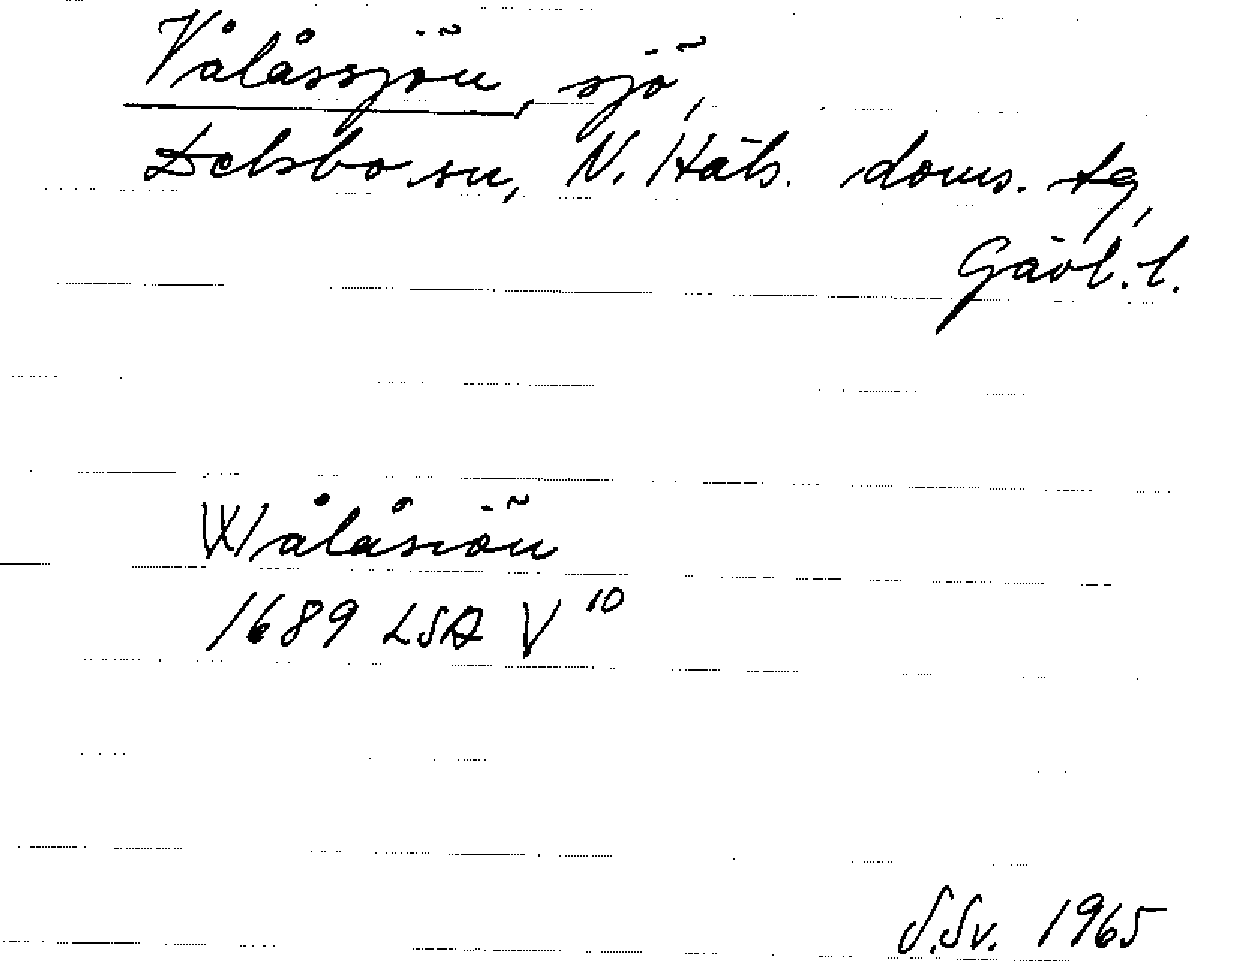 Vålåssjön, sjö,
Delsbo sn, N. Häls. doms. tg,
Gävl. l.
Wålåsiön
1689 LSA V 10
S.Sv. 1965